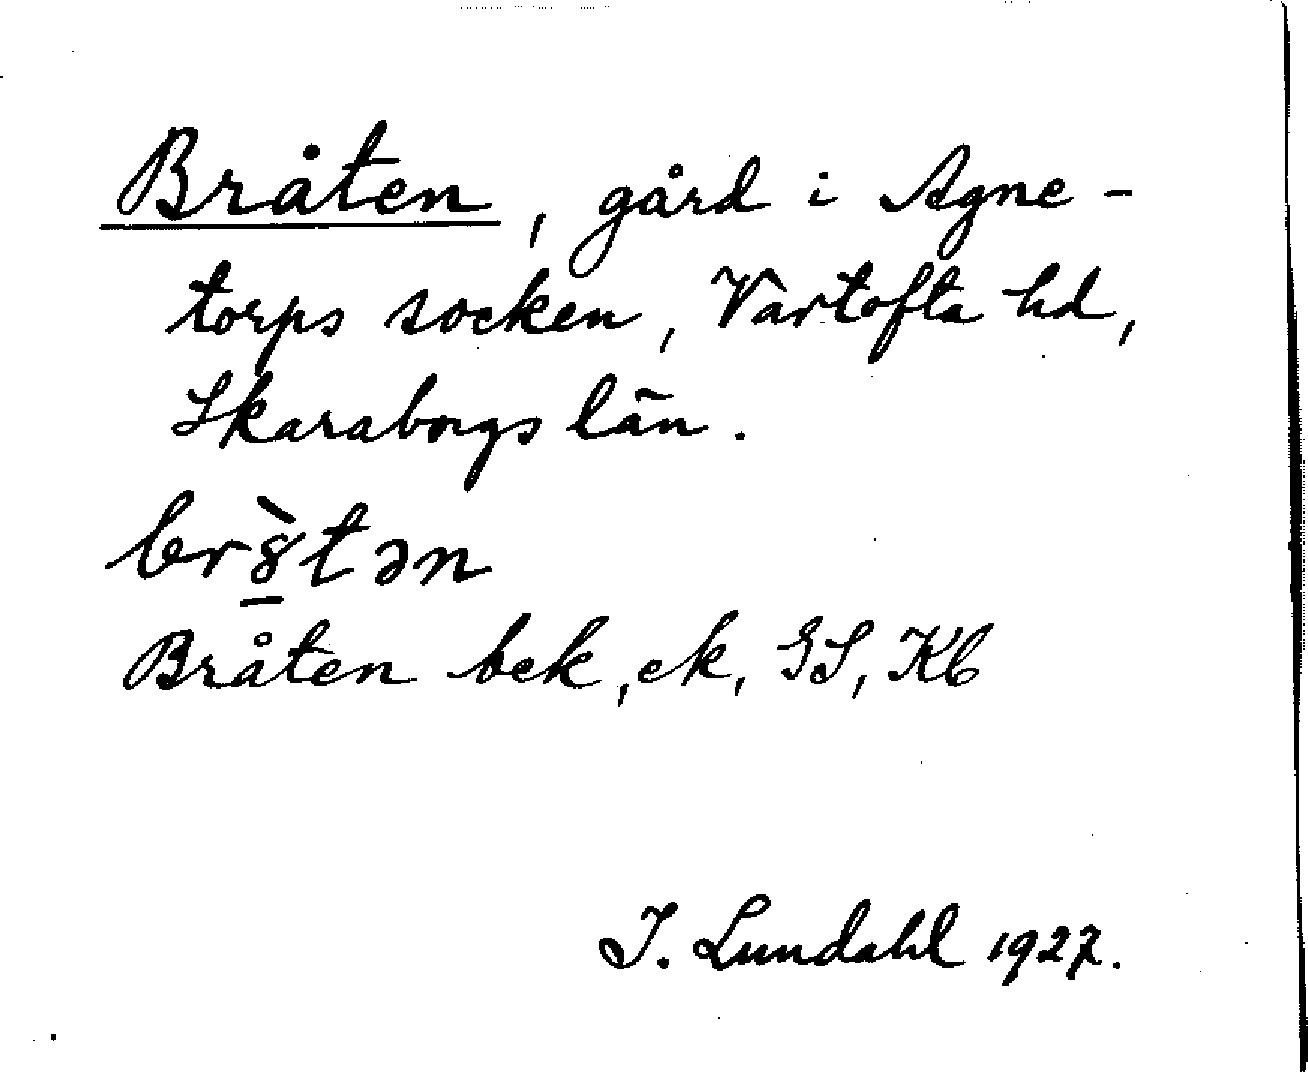 Bråten, gård i Agne-
torps socken, Vartofta hd,
Skaraborgs län.
br8̠̀tən
Bråten bek, ek, GS, Kb
I. Lundahl 1927.